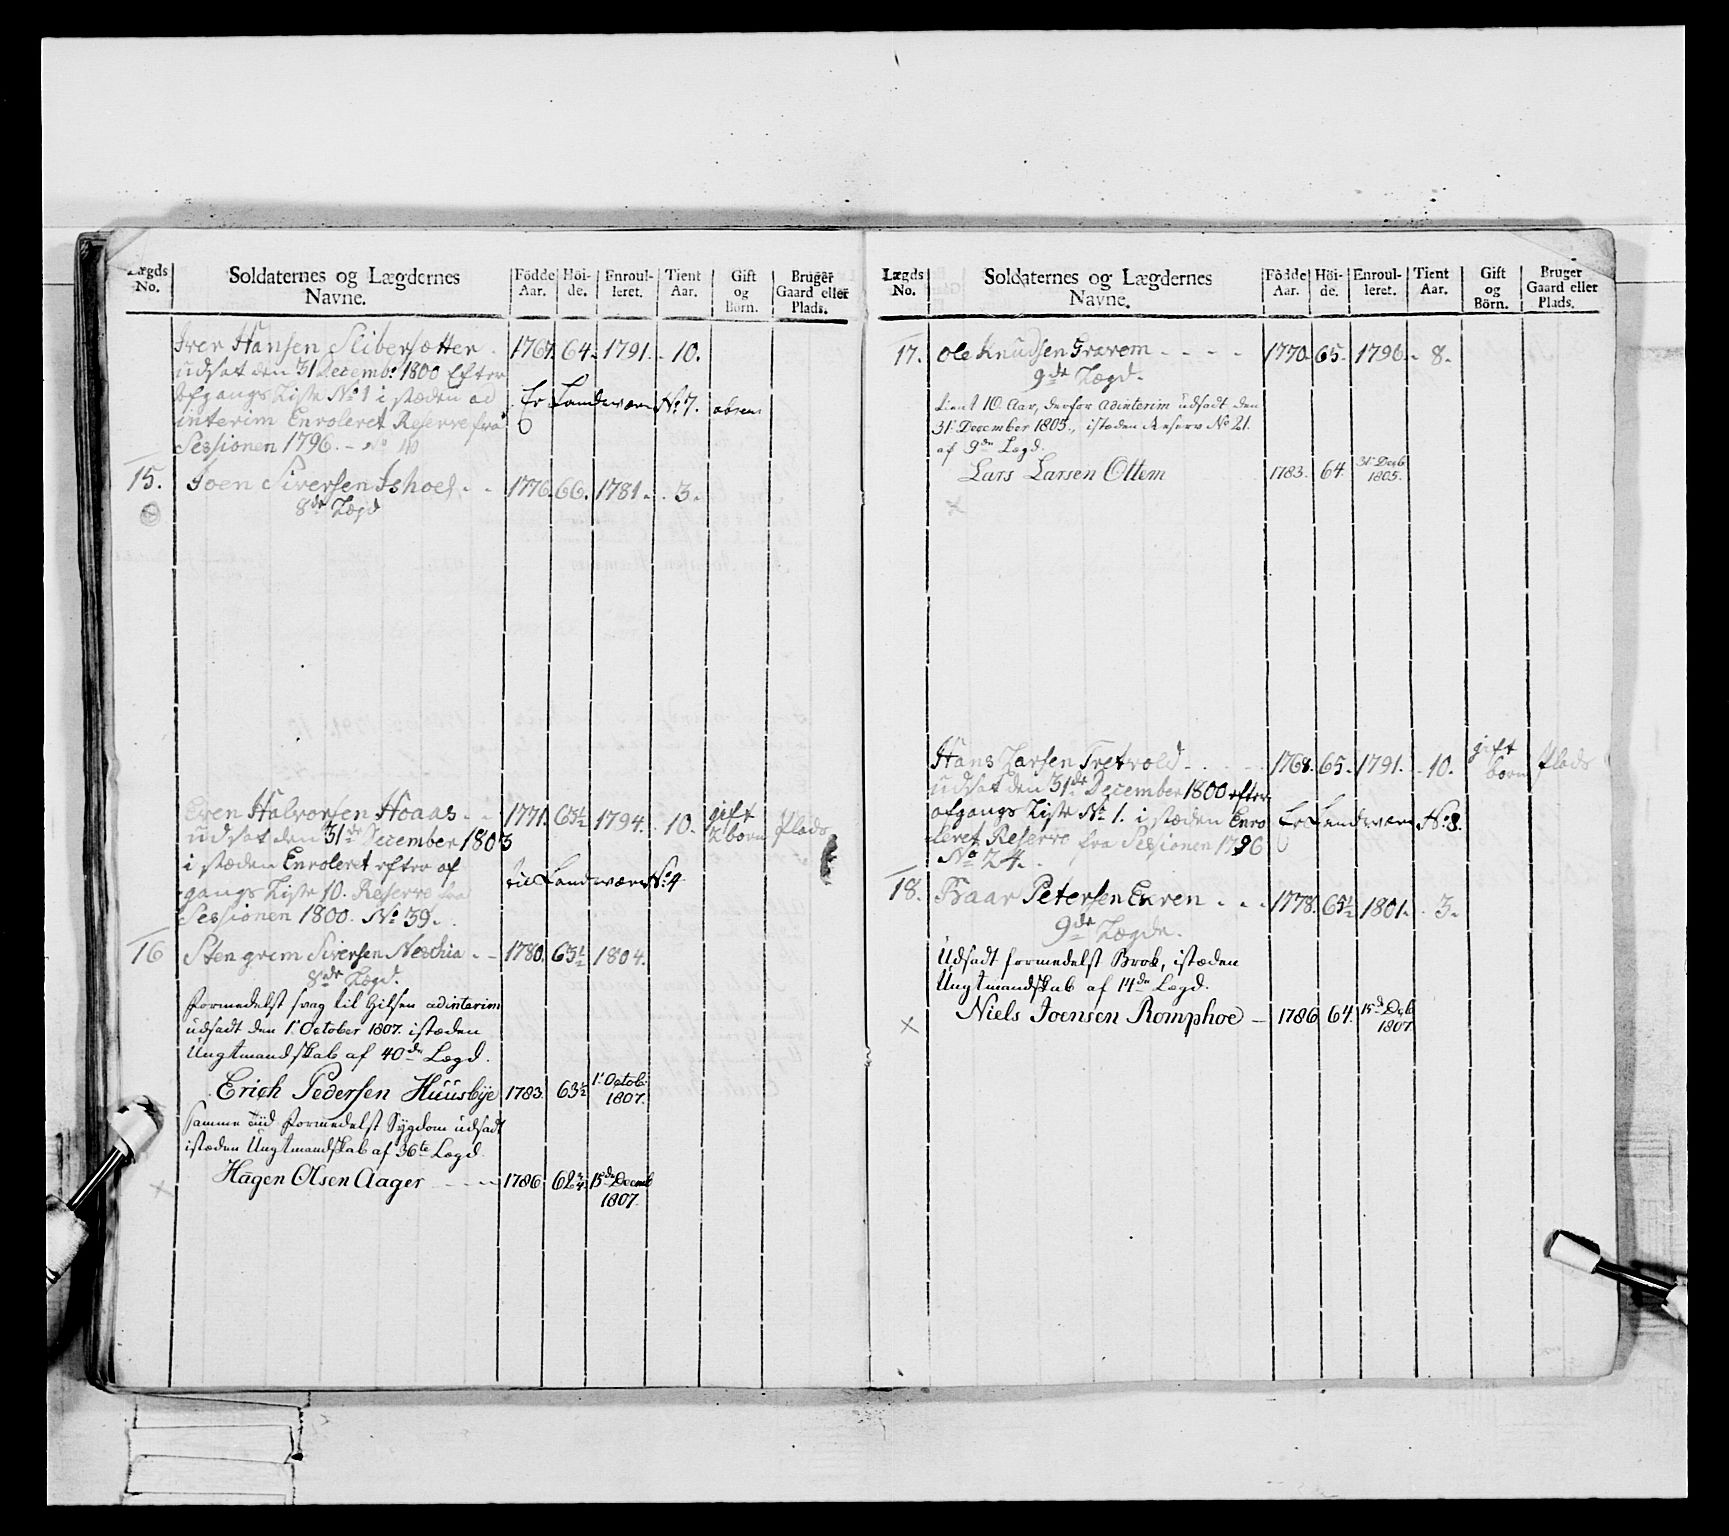 Lægds No. Soldaternes og Lægdernes Navne. Födde Aar. Höi-de. Enroul-leret. Tient Aar. Gift og Börn. Bruger Gaard eller Plads.
Iver Hansen SliberSætter 1767. 64. 1791. 10.
udsat den 31 Decemb: 1800 Efter
Afgangs Liste No 1 i stæden ad
Er Landværn No 7.
interim Enroleret Reserve fra
Sessionen 1796. - No 10
15. Joen Siversen Ishoel - - 1776. 66. 1781. 3.
8de Lægd
Even Halvorsen Hoaas - - 1771. 63½ 1794. 10. gift 2 born Plads
udsat den 31de December 1803
i stæden Enroleret efter af
gangs Liste 10. Reserve fra
til Landværn No 4
Sessionen 1800. No 39.
16 Stengrim Siversen Neschia - - 1780. 63½ 1804.
8de Lægd.
formedelst svag til Hilsen adinterim
udsadt den 1. October 1807. istæden
Ungtmandskab af 40de Lægd.
Erich Pedersen Huusbye 1783. 63½ 1. Octob: 1807.
Samme uid formedelst Sygdom udsadt
istæden Ungtmandskab af 36te Lægd
Hagen Olsen Aager - - - 1786. 62¾ 15de Decemb 1807.
Lægds No. Soldaternes og Lægdernes Navne. Födde Aar. Höi-de. Enroul-leret. Tient Aar. Gift og Börn. Bruger Gaard eller Plads.
17. Ole Knudsen Gravem - - - - 1770. 65. 1796. 8.
9de Lægd.
tient 10 Aar, derfor adinterim udsadt den
31. December 1805., istæden Reserv No 21.
af 9de Lægd.
Lars Larsen Ottem 1783. 64. 31. Decb. 1805.
Hans Larsen Tretvold - - - 1768. 65. 1791. 10. gift born Plads
udsat den 31de December 1800 efter
afgangs Liste No 1. i stæden Enro
Er Landværn No 8.
leret Reserve fra Sessionen 1796
No 24.
18. Baar Petersen Exren - - - 1778. 65½ 1801. 3.
9de Lægde.
Udsadt formedelst Brok, istæden
Ungtmandskab af 14de Lægd.
Niels Joensen Romphoe - 1786 64. 15de Decb 1807